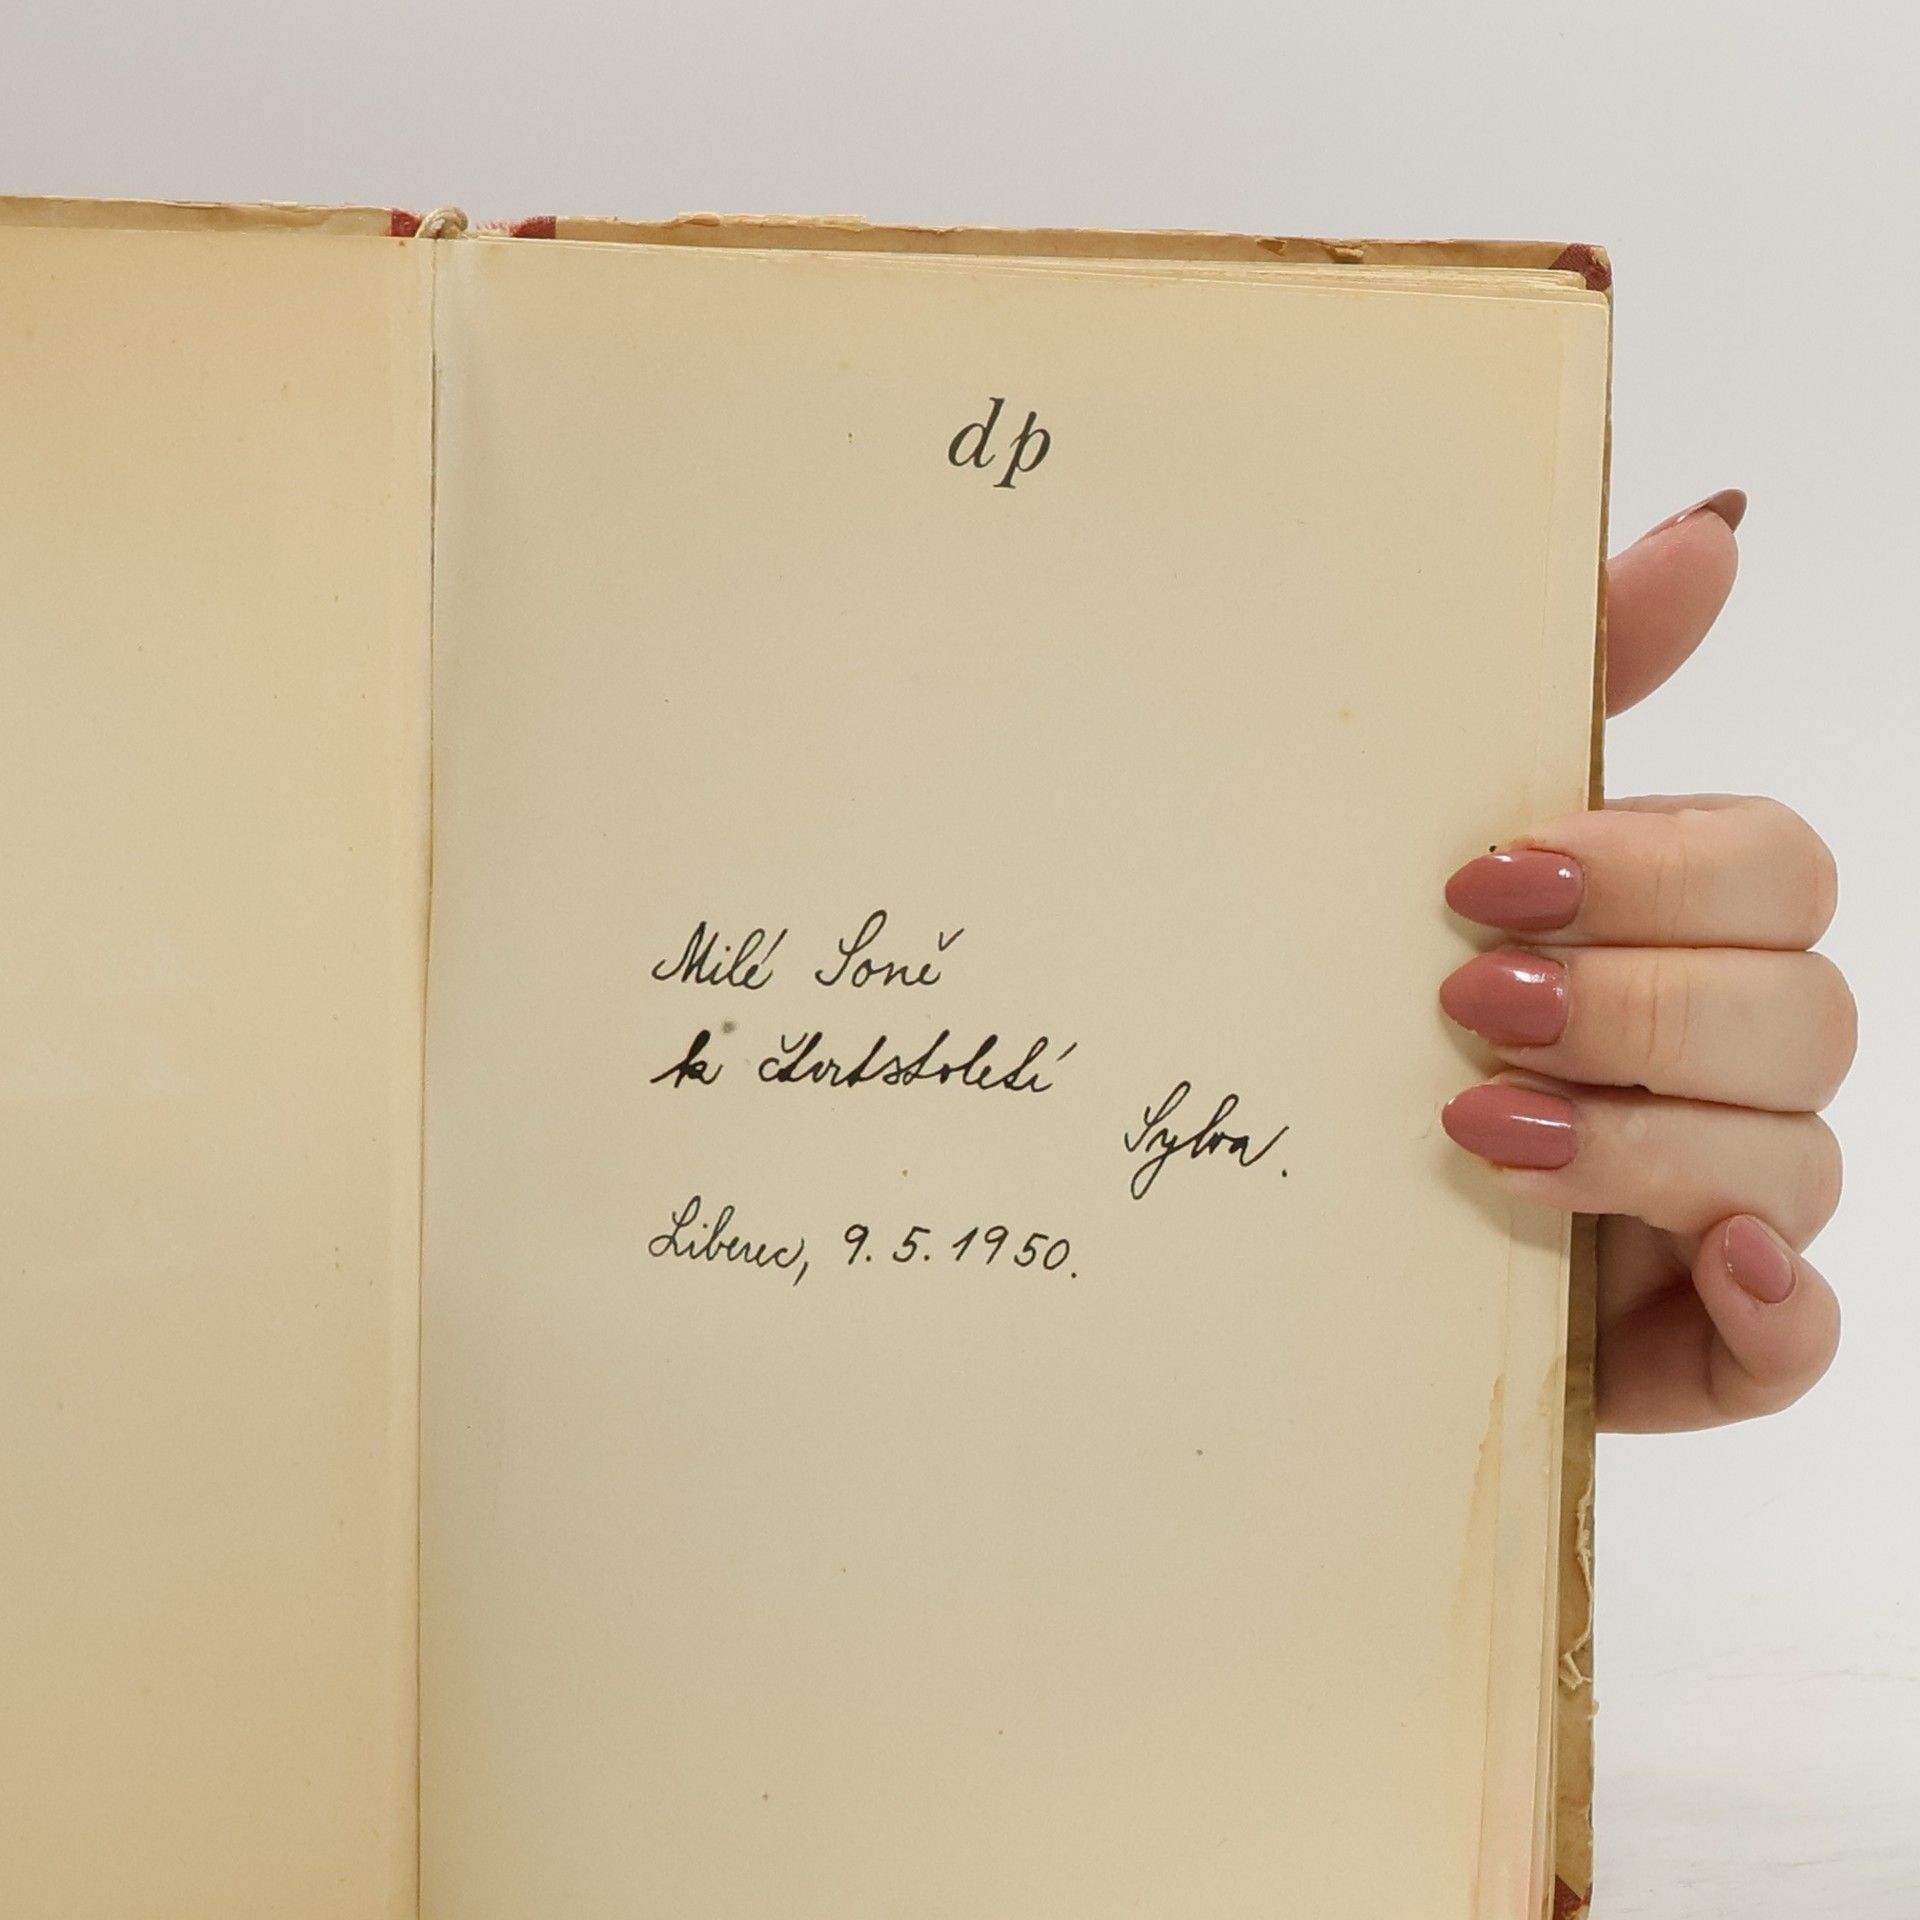 dp
Milé Soně
k čtvrtstoletí
Sylva.
Liberec, 9. 5. 1950.